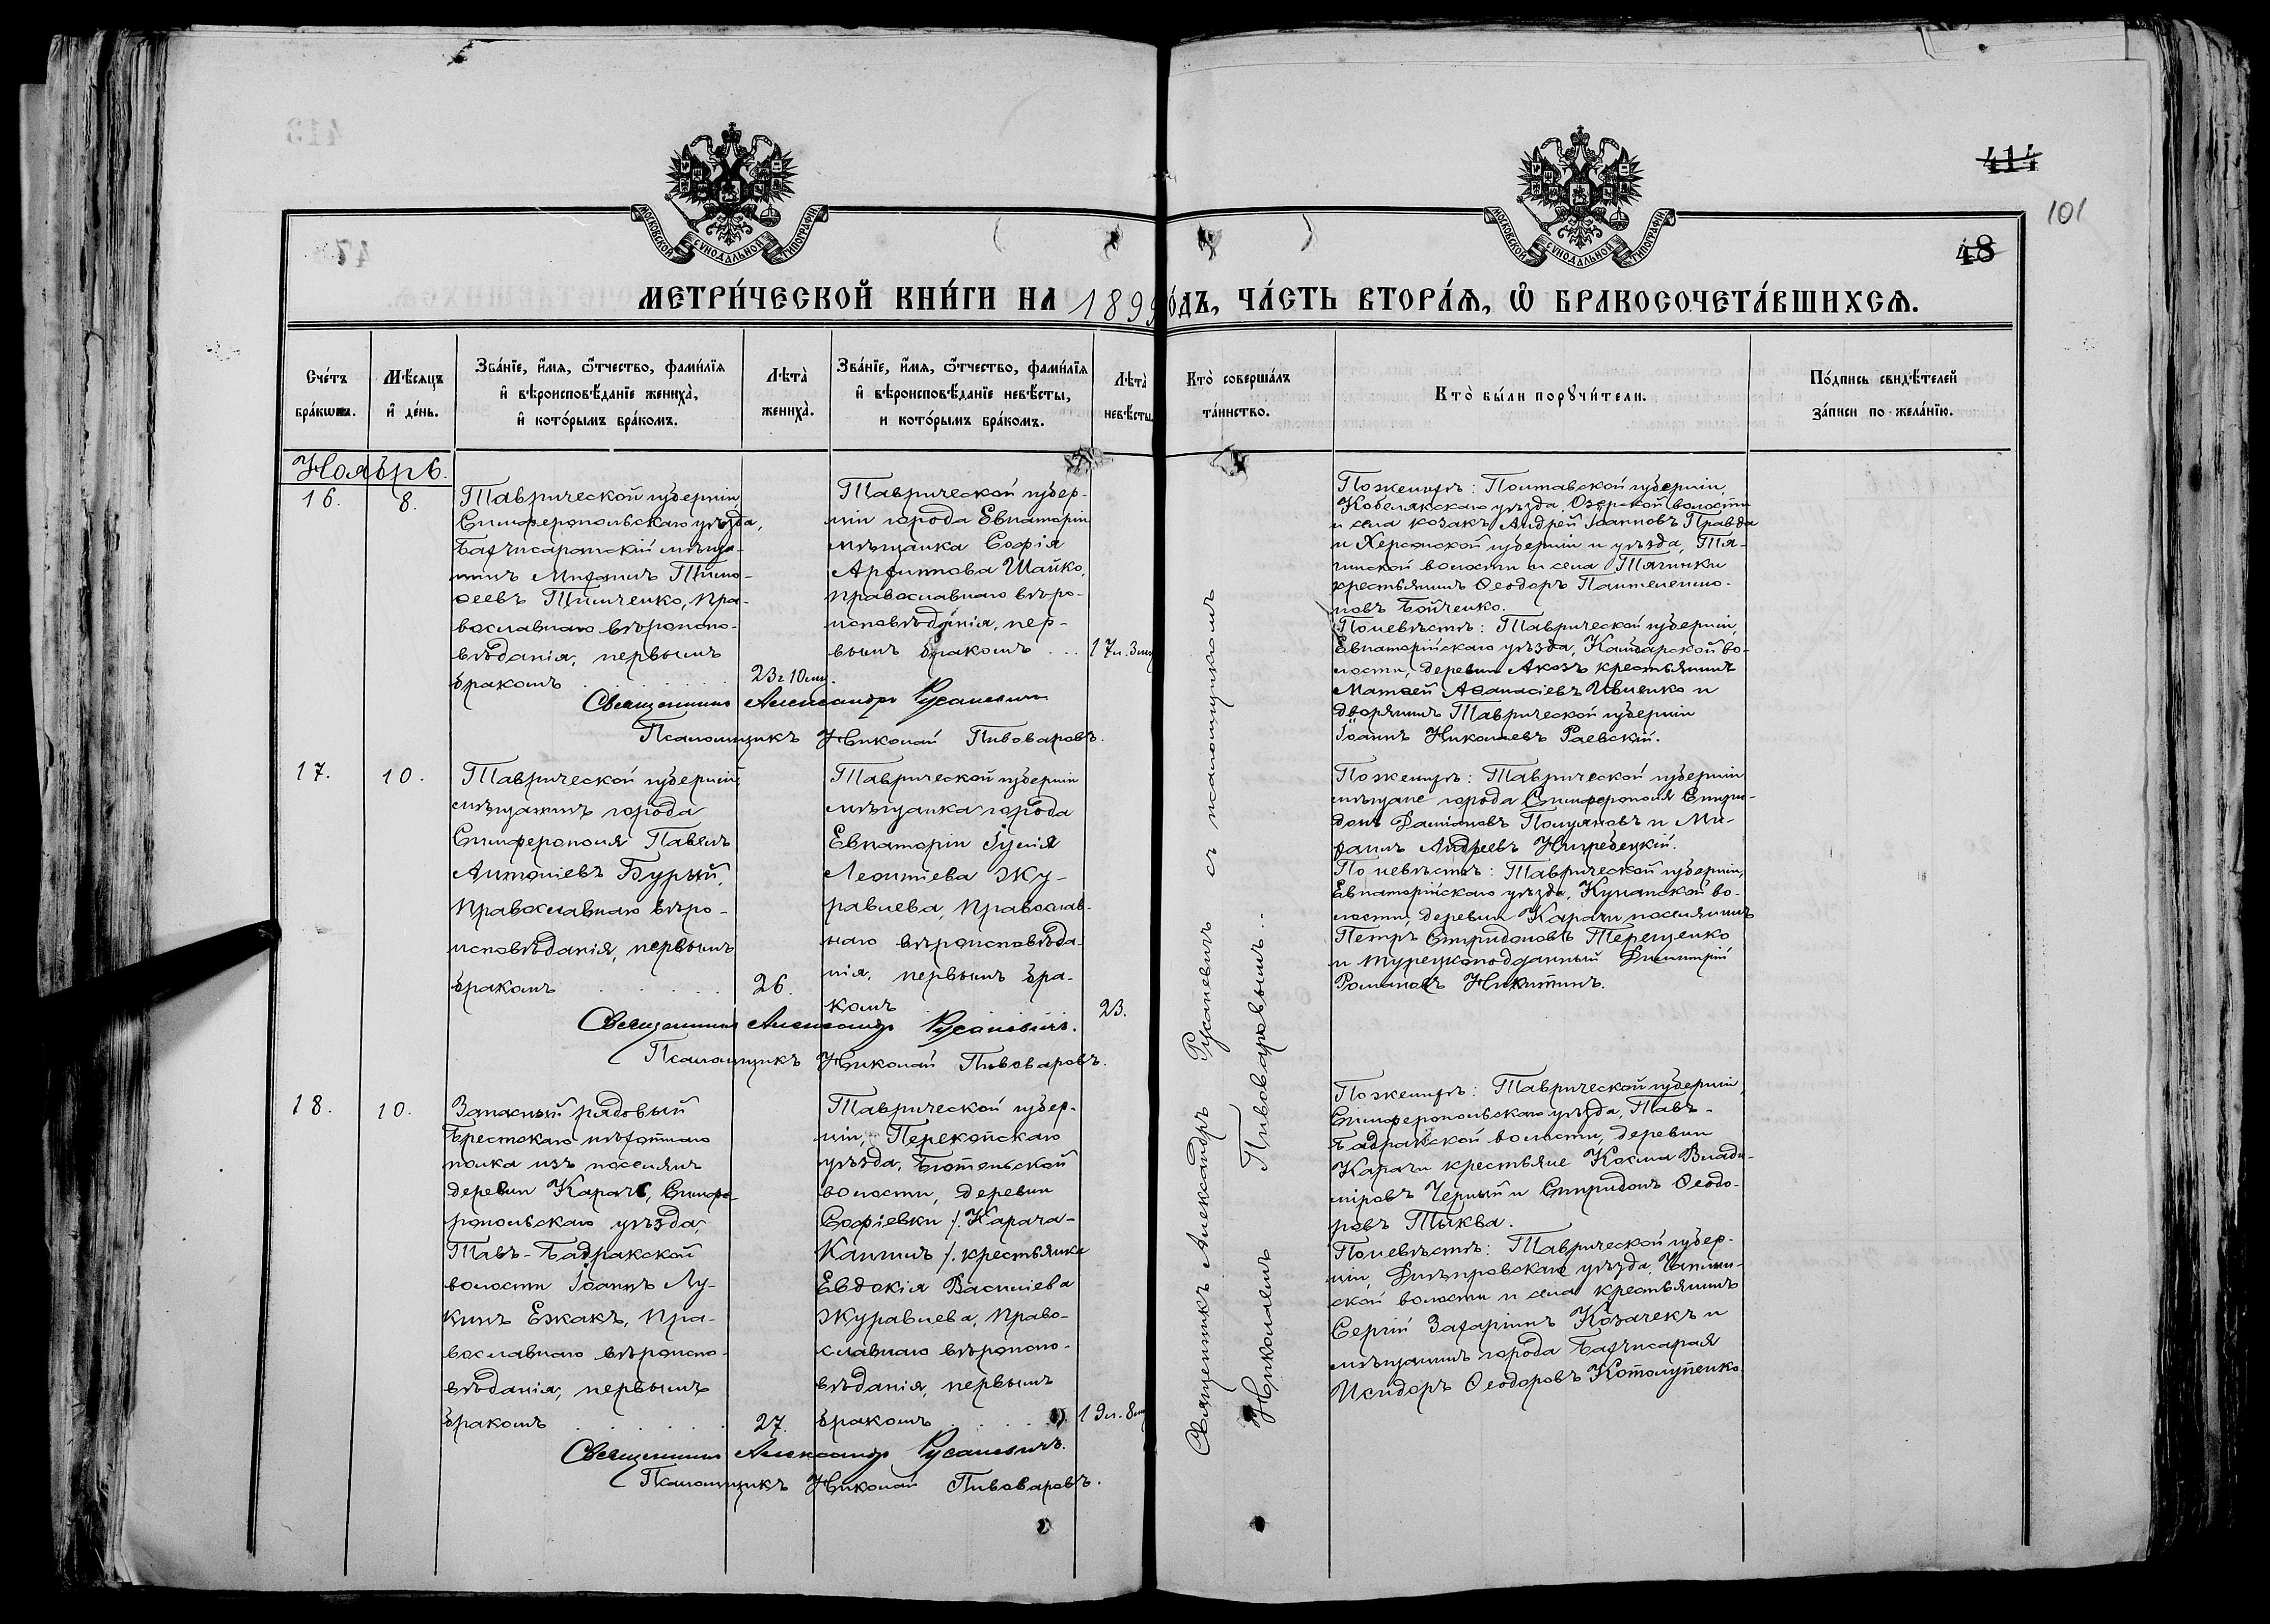 414
101
48
МОСКОВСКОЙ СѴНОДАЛЬНОЙ ТИПОГРАФІИ
МОСКОВСКОЙ СѴНОДАЛЬНОЙ ТИПОГРАФІИ
МЕТРИ́ЧЕСКОЙ КНИ́ГИ НА 1899 ГО́ДЪ, ЧА́СТЬ ВТОРА́Ѧ, Ѽ БРАКОСОЧЕТА́ВШИХСѦ.
Сче́тъ
бра́кѡвъ.
Мѣ́сяцъ
и҆ де́нь.
Зва́нїе, и҆́мя, ѻ҆́тчество, фами́лїя
и҆ вѣроисповѣ́данїе жениха̀,
и҆ кото́рымъ бра́комъ.
Лѣта̀
жениха̀.
Зва́нїе, и҆́мя, ѻ҆́тчество, фами́лїя
и҆ вѣроисповѣ́данїе невѣ́сты,
и кото́рымъ бра́комъ.
Лѣта̀
невѣ́сты.
Кто̀ соверша́лъ
та́инство.
Кто̀ бы́ли порꙋчи́тели.
По́дпись свидѣ́телей
за́писи по жела́нїю.
Ноябрь.
16.
8.
Таврической губерніи,
Симферопольскаго уѣзда,
Бахчисарайскій мѣща-
нинъ Митрофанъ Тимо-
феевъ Тимченко, пра-
вославнаго вѣроиспо-
вѣданія, первымъ
бракомъ . . . . .
23 г 10 мц.
Таврической губер-
ніи города Евпаторіи
мѣщанка Софія
Архипова Шайко,
православнаго вѣро-
исповѣданія, пер-
вымъ бракомъ . . .
17 л. 3 мц
Священникъ Александръ Русаневичъ
Псаломщикъ Николай Пивоваровъ.
По женихѣ: Полтавской губерніи,
Кобелякскаго уѣзда, Озерской волости
и села козакъ Андрей Іоанновъ Правда
и Херсонской губерніи и уѣзда, Тя-
гинской волости и села Тягинки
крестьянинъ Ѳеодоръ Пантелеимо-
новъ Бойченко.
По невѣстѣ: Таврической губерніи,
Евпаторійскаго уѣзда, Камбарской во-
лости, деревни Акозъ крестьянинъ
Матѳей Аѳанасіевъ Ивненко и
дворянинъ Таврической губерніи
Іоаннъ Николаевъ Раевскій.
17.
10.
Таврической губерніи,
мѣщанинъ города
Симферополя Павелъ
Антоніевъ Бурый,
православнаго вѣро-
исповѣданія, первымъ
бракомъ . . . .
26.
Таврической губерніи
мѣщанка города
Евпаторіи Іулія
Леонтіева Жу-
равлева, православ-
наго вѣроисповѣда-
нія, первымъ бра-
комъ
23.
Священникъ Александръ Русаневичъ.
Псаломщикъ Николай Пивоваровъ.
По женихѣ: Таврической губерніи
мѣщане города Симферополя Спири-
донъ Даміановъ Полуяновъ и Ми-
хаилъ Андреевъ
По невѣстѣ: Таврической губерніи,
Евпаторійскаго уѣзда, Курманской во-
лости, деревни Карачи поселянинъ
Петръ Спиридоновъ Терещенко
и турецкоподданный Димитрій
Романовъ Никитинъ.
18.
10.
Запасный рядовый
Брестскаго пѣхотнаго
полка изъ поселянъ
деревни Карачъ, Симфе-
ропольскаго уѣзда,
Тавъ-Бадракской
волости Іоаннъ Лу-
кинъ Ежакъ, пра-
вославнаго вѣроиспо-
вѣданія, первымъ
бракомъ . . . . .
27.
Таврической губер-
ніи, Перекопскаго
уѣзда, Бютеньской
волости, деревни
Софіевки /. Карача-
Каншъ /. крестьянка
Евдокія Василіева
Журавлева, право-
славнаго вѣроиспо-
вѣданія, первымъ
бракомъ . . . .
19 л. 8 мц
Священникъ Александръ Русаневичъ.
Псаломщикъ Николай Пивоваровъ.
По женихѣ: Таврической губерніи,
Симферопольскаго уѣзда, Тавъ-
Бадракской волости, деревни
Карачи крестьяне Косма Влади-
міровъ Черный и Спиридонъ Ѳеодо-
ровъ Тыква.
По невѣстѣ: Таврической губер-
ніи, Днѣпровскаго уѣзда, Чаплин-
ской волости и села крестьянинъ
Сергій Захаріинъ Козачекъ и
мѣщанинъ города Бахчисарая
Исидоръ Ѳеодоровъ Котолупенко.
Священникъ Александръ Русаневичъ съ псаломщикомъ
Николаемъ Пивоваровымъ.